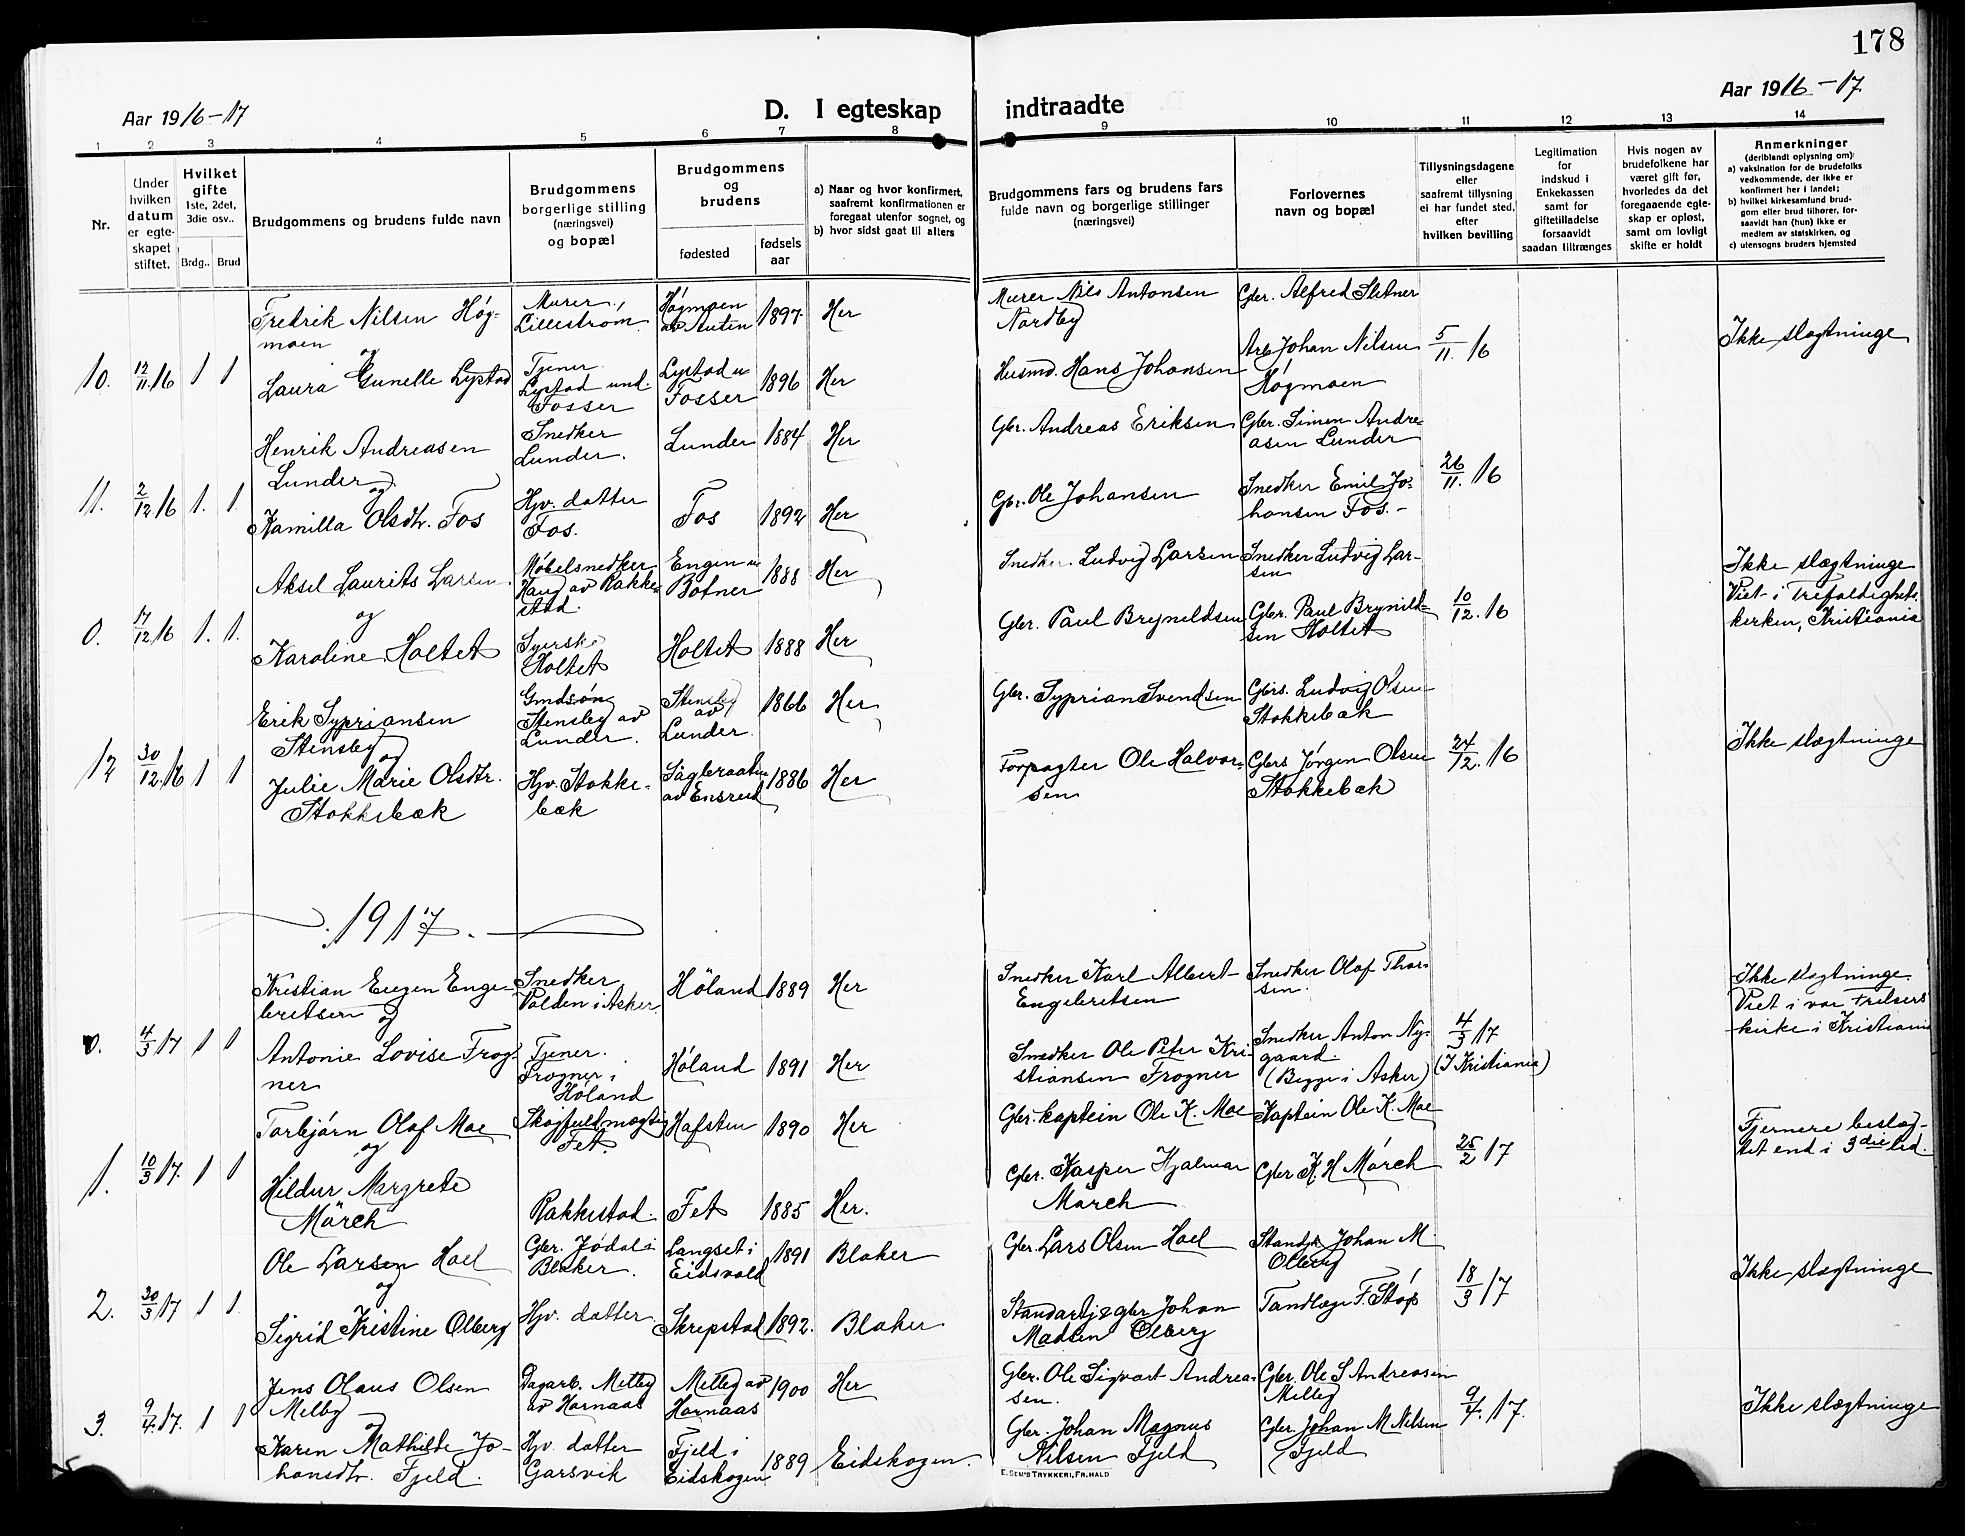 178
Aar 1916-17
D. I egteskap indtraadte
Aar 1916-17
1 2 3 4 5 6 7 8 9 10 11 12 13 14
Nr.
Under hvilken datum er egteskapet stiftet.
Hvilket gifte 1ste, 2det, 3die osv..
Brdg.. Brud
Brudgommens og brudens fulde navn
Brudgommens borgerlige stilling (næringsvei) og bopæl
Brudgommens og brudens
fødested
fødsels aar
a) Naar og hvor konfirmert, saafremt konfirmationen er foregaat utenfor sognet, og
b) hvor sidst gaat til alters
Brudgommens fars og brudens fars fulde navn og borgerlige stillinger (næringsvei)
Forlovernes navn og bopæl
Tillysningsdagene eller saafremt tillysning ei har fundet sted, efter hvilken bevilling
Legitimation for indskud i Enkekassen samt for giftetilladelse forsaavidt saadan tiltrænges
Hvis nogen av brudefolkene har været gift før, hvorledes da det foregaaende egteskap er opløst, samt om lovligt skifte er holdt
Anmerkninger (deriblandt oplysning om):
a) vaksination for de brudefolks vedkommende, der ikke er konfirmert her i landet;
b) hvilket kirkesamfund brudgom eller brud tilhører, forsaavidt han (hun) ikke er medlem av statskirken, og
c) utensogns bruders hjemsted
10. 12/11 16 1 1
Fredrik Nilsen Høgmoen
og
Laura Gunelle Lystad
Murer, Lillestrøm
Tjener. Lystad und. Fosser
Høgmoen av Auten 1897 Her
Lystad u Fosser 1896 Her
Murer Nils Antonsen Nordby
Husmd. Hans Johansen
Gbr. Alfred Sletner
Arb Johan Nilsen Høgmoen
5/11. 16
Ikke slegtninge
11. 2/12 16 1. 1.
Henrik Andreasen Lunder
og
Kamilla Olsdtr. Fos
Snedker Lunder.
Hjv. datter Fos.
Lunder 1884 Her
Fos 1892 Her
Gbr. Andreas Eriksen
Gbr. Ole Johansen
Gbr. Simen Andreasen Lunder
Snedker Emil Johansen Fos.-
26/11. 16
0. 17/12 16 1. 1.
Aksel Laurits Larsen
og
Karoline Holtet
Møbelsnedker Haug av Rakkestad.
Syerske Holtet
Engen u Botner 1888 Her
Holtet 1888 Her
Snedker. Ludvig Larsen
Gbr. Paul Bryneldsen
Snedker Ludvig Larsen
Gbr. Paul Bryneldsen Holtet
10/12. 16
Ikke slegtninge
Viet i Trefoldighetskirken, Kristiania
12 30/12. 16 1 1
Erik Sypriansen Stensby
og
Julie Marie Olsdtr. Stokkebæk
Gmdsøn Stensby av Lunder.
Hjv. Stokkebæk
Stensby av Lunder. 1866 Her
av Ensrud 1886 Her
Gbr. Syprian Svendsen
Forpagter Ole Halvorsen
Gbrs. Ludvig Olsen Stokkebæk
Gbrs Jørgen Olsen Stokkebæk
24/12. 16
Ikke slegtninge
1917.
0. 4/3 17 1 1
Kristian Eugen Engebretsen
og
Antonie Lovise Frogner
Snedker Valden i Asker.
Tjener. Frogner i Høland
Höland 1889 Her
Høland 1891 Her
Snedker Karl Albert Engebretsen
Snedker Ole Peter Kristiansen Frogner
Snedker Olaf Thorsen.
Snedker Anton Nygaard. (Begge i Asker)
4/3 17 (I Kristiania)
Ikke slegtninge.
Viet i vor Frelsers kirke i Kristiania
1. 10/3 17. 1 1
Torbjørn Olaf Moe
og
Hildur Margrete Mörch
Skogfuldmægtig Fet.
Rakkestad.
Hofsten 1890 Her
Fet 1885 Her.
Gbr. kaptein Ole K. Moe
Gbr. Kasper Hjalmar Mörch
Kaptein Ole K. Moe
Gbr K. H Mörch
25/2 17
Fjernere beslegtet end i 3die led.
2. 30/3 17 1 1.
Ole Larsen Hael
og
Sigrid Kristine Olberg
Gbr. Jødal i Blaker.
Hjv. datter
Langset i Eidsvold 1891 Blaker
Skrepstad 1892. Blaker.
Gbr. Lars Olsen Hael
Standartj & gbr Johan Madsen Olberg
Standj. Johan M. Olberg
Tandlæge F. Støp
18/3 17
Ikke slegtninge
3. 9/4. 17. 1 1
Jens Olaus Olsen Melby
og
Karen Mathilde Johansdtr. Fjeld.
Dagarb. Melby av Hornaas
Hjv. datter Garsvik
Melby av Hornaas 1900 Her
Fjeld i Eidskogen 1889 Eidskogen.
Gbr. Ole Sigvart Andreasen.
Gbr. Johan Magnus Nilsen Fjeld
Gbr. Ole S Andreasen Melby
Gbr Johan M Nilsen Fjeld
9/4. 17.
Ikke slegtninge
E. SEM'S TRYKKERI, FR.HALD